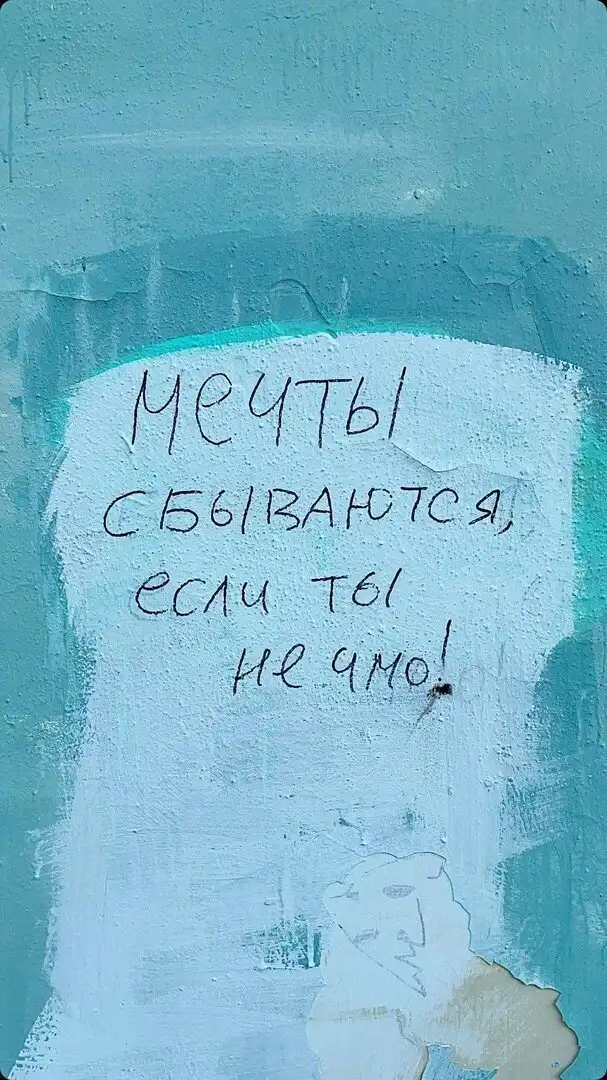 Мечты
сбываются,
если ты
не чмо!